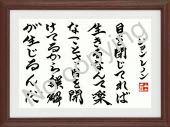 ジョンレノン
目を閉じてれば
生きるなんて楽
なことさ目を開
けてるから誤解
が生じるんだ
No Copying